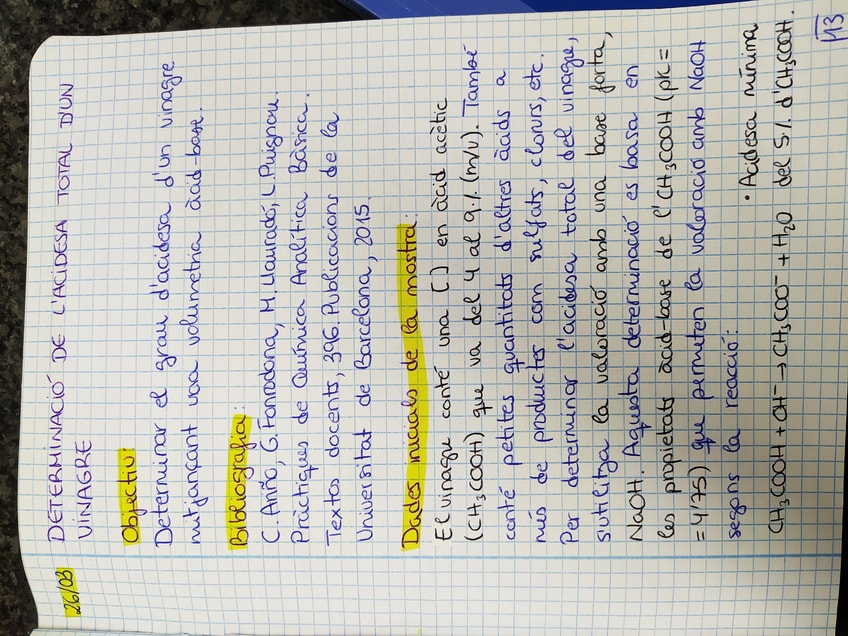 26/03
DETERMINACIÓ DE L'ACIDESA TOTAL D'UN
VINAGRE
Objectiu:
Determinar el grau d'acidesa d'un vinagre
mitjançant una volumetria àcid-base.
Bibliografia:
C. Ariño, G. Fonrodona, M. Llauradó, L. Puignou.
Pràctiques de Química Analítica Bàsica.
Textos docents, 396. Publicacions de la
Universitat de Barcelona, 2015.
Dades inicials de la mostra:
El vinagre conté una [] en àcid acètic
(CH₃COOH) que va del 4 al 9% (m/v). També
conté petites quantitats d'altres àcids a
més de productes com sulfats, clorurs, etc.
Per determinar l'acidesa total del vinagre,
s'utilitza la valoració amb una base forta,
NaOH. Aquesta determinació es basa en
les propietats àcid-base de l'CH₃COOH (pk =
= 4'75) que permeten la valoració amb NaOH
segons la reacció:
• Acidesa mínima
CH₃COOH + OH⁻ → CH₃COO⁻ + H₂O del 5% d'CH₃COOH.
13